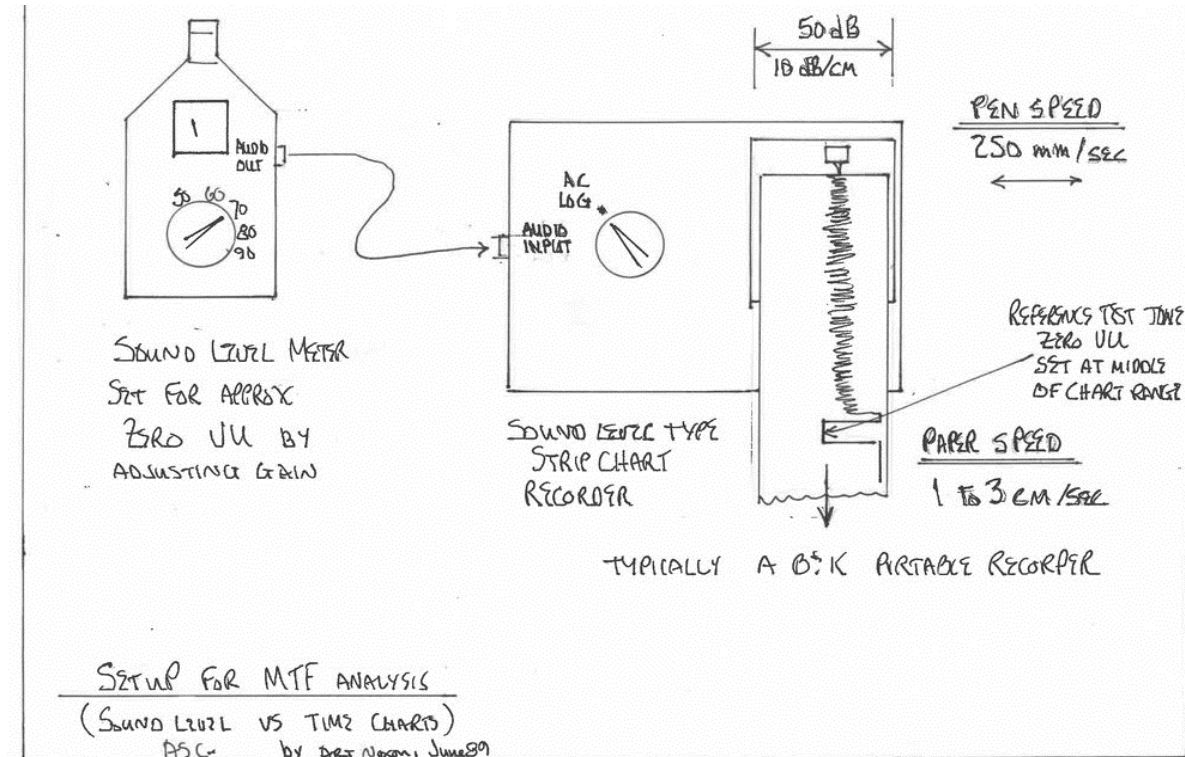 50 dB
10 dB/CM
PEN SPEED
250 mm/SEC
AUDIO
OUT
50 60 70 80 90
AC
LOG
AUDIO
INPUT
REFERENCE TEST TONE
ZERO VU
SET AT MIDDLE
OF CHART RANGE
SOUND LEVEL METER
SET FOR APPROX
ZERO VU BY
ADJUSTING GAIN
SOUND LEVEL TYPE
STRIP CHART
RECORDER
PAPER SPEED
1 TO 3 CM/SEC
TYPICALLY A B&K PORTABLE RECORDER
SETUP FOR MTF ANALYSIS
(SOUND LEVEL VS TIME CHARTS)
ASC by ART NOXON, June 89